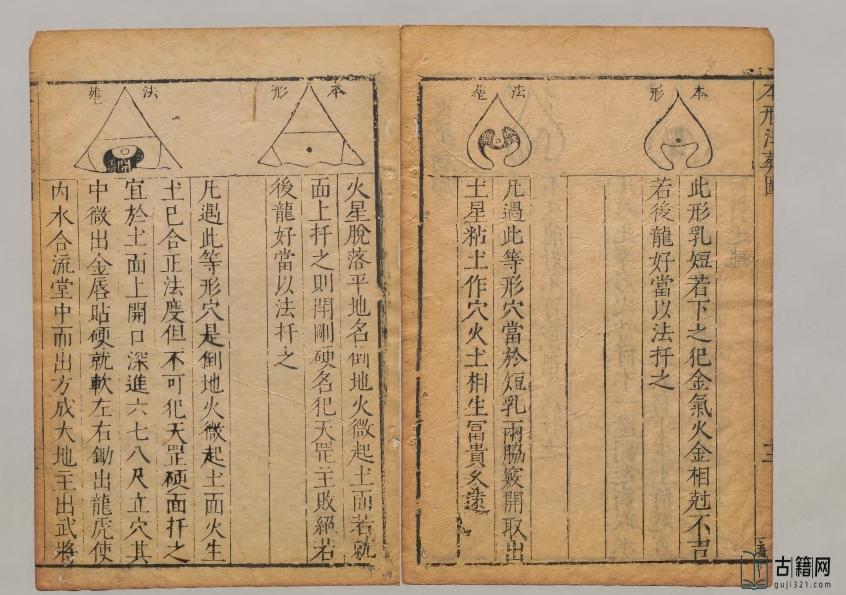 本形法葬圖
本形
此形乳短若下之犯金氣火金相尅不吉
若後龍好當以法扦之
法塟
凡遇此等形穴當於短乳兩脇竅開取出
土星粘土作穴火土相生富貴久遠
十三
本形
火星脫落平地名倒地火微起土面若就
面上扦之則閗剛硬名犯天罡主敗絕若
後龍好當以法扦之
法塟
凡遇此等形穴是倒地火微起土面火生
土已合正法度但不可犯天罡硬面扦之
宜於土面上開口深進六七八尺立穴其
中微出金唇貼硬就軟左右鋤出龍虎使
內水合流堂中而出方成大地主出武將
古籍网
guji321.com